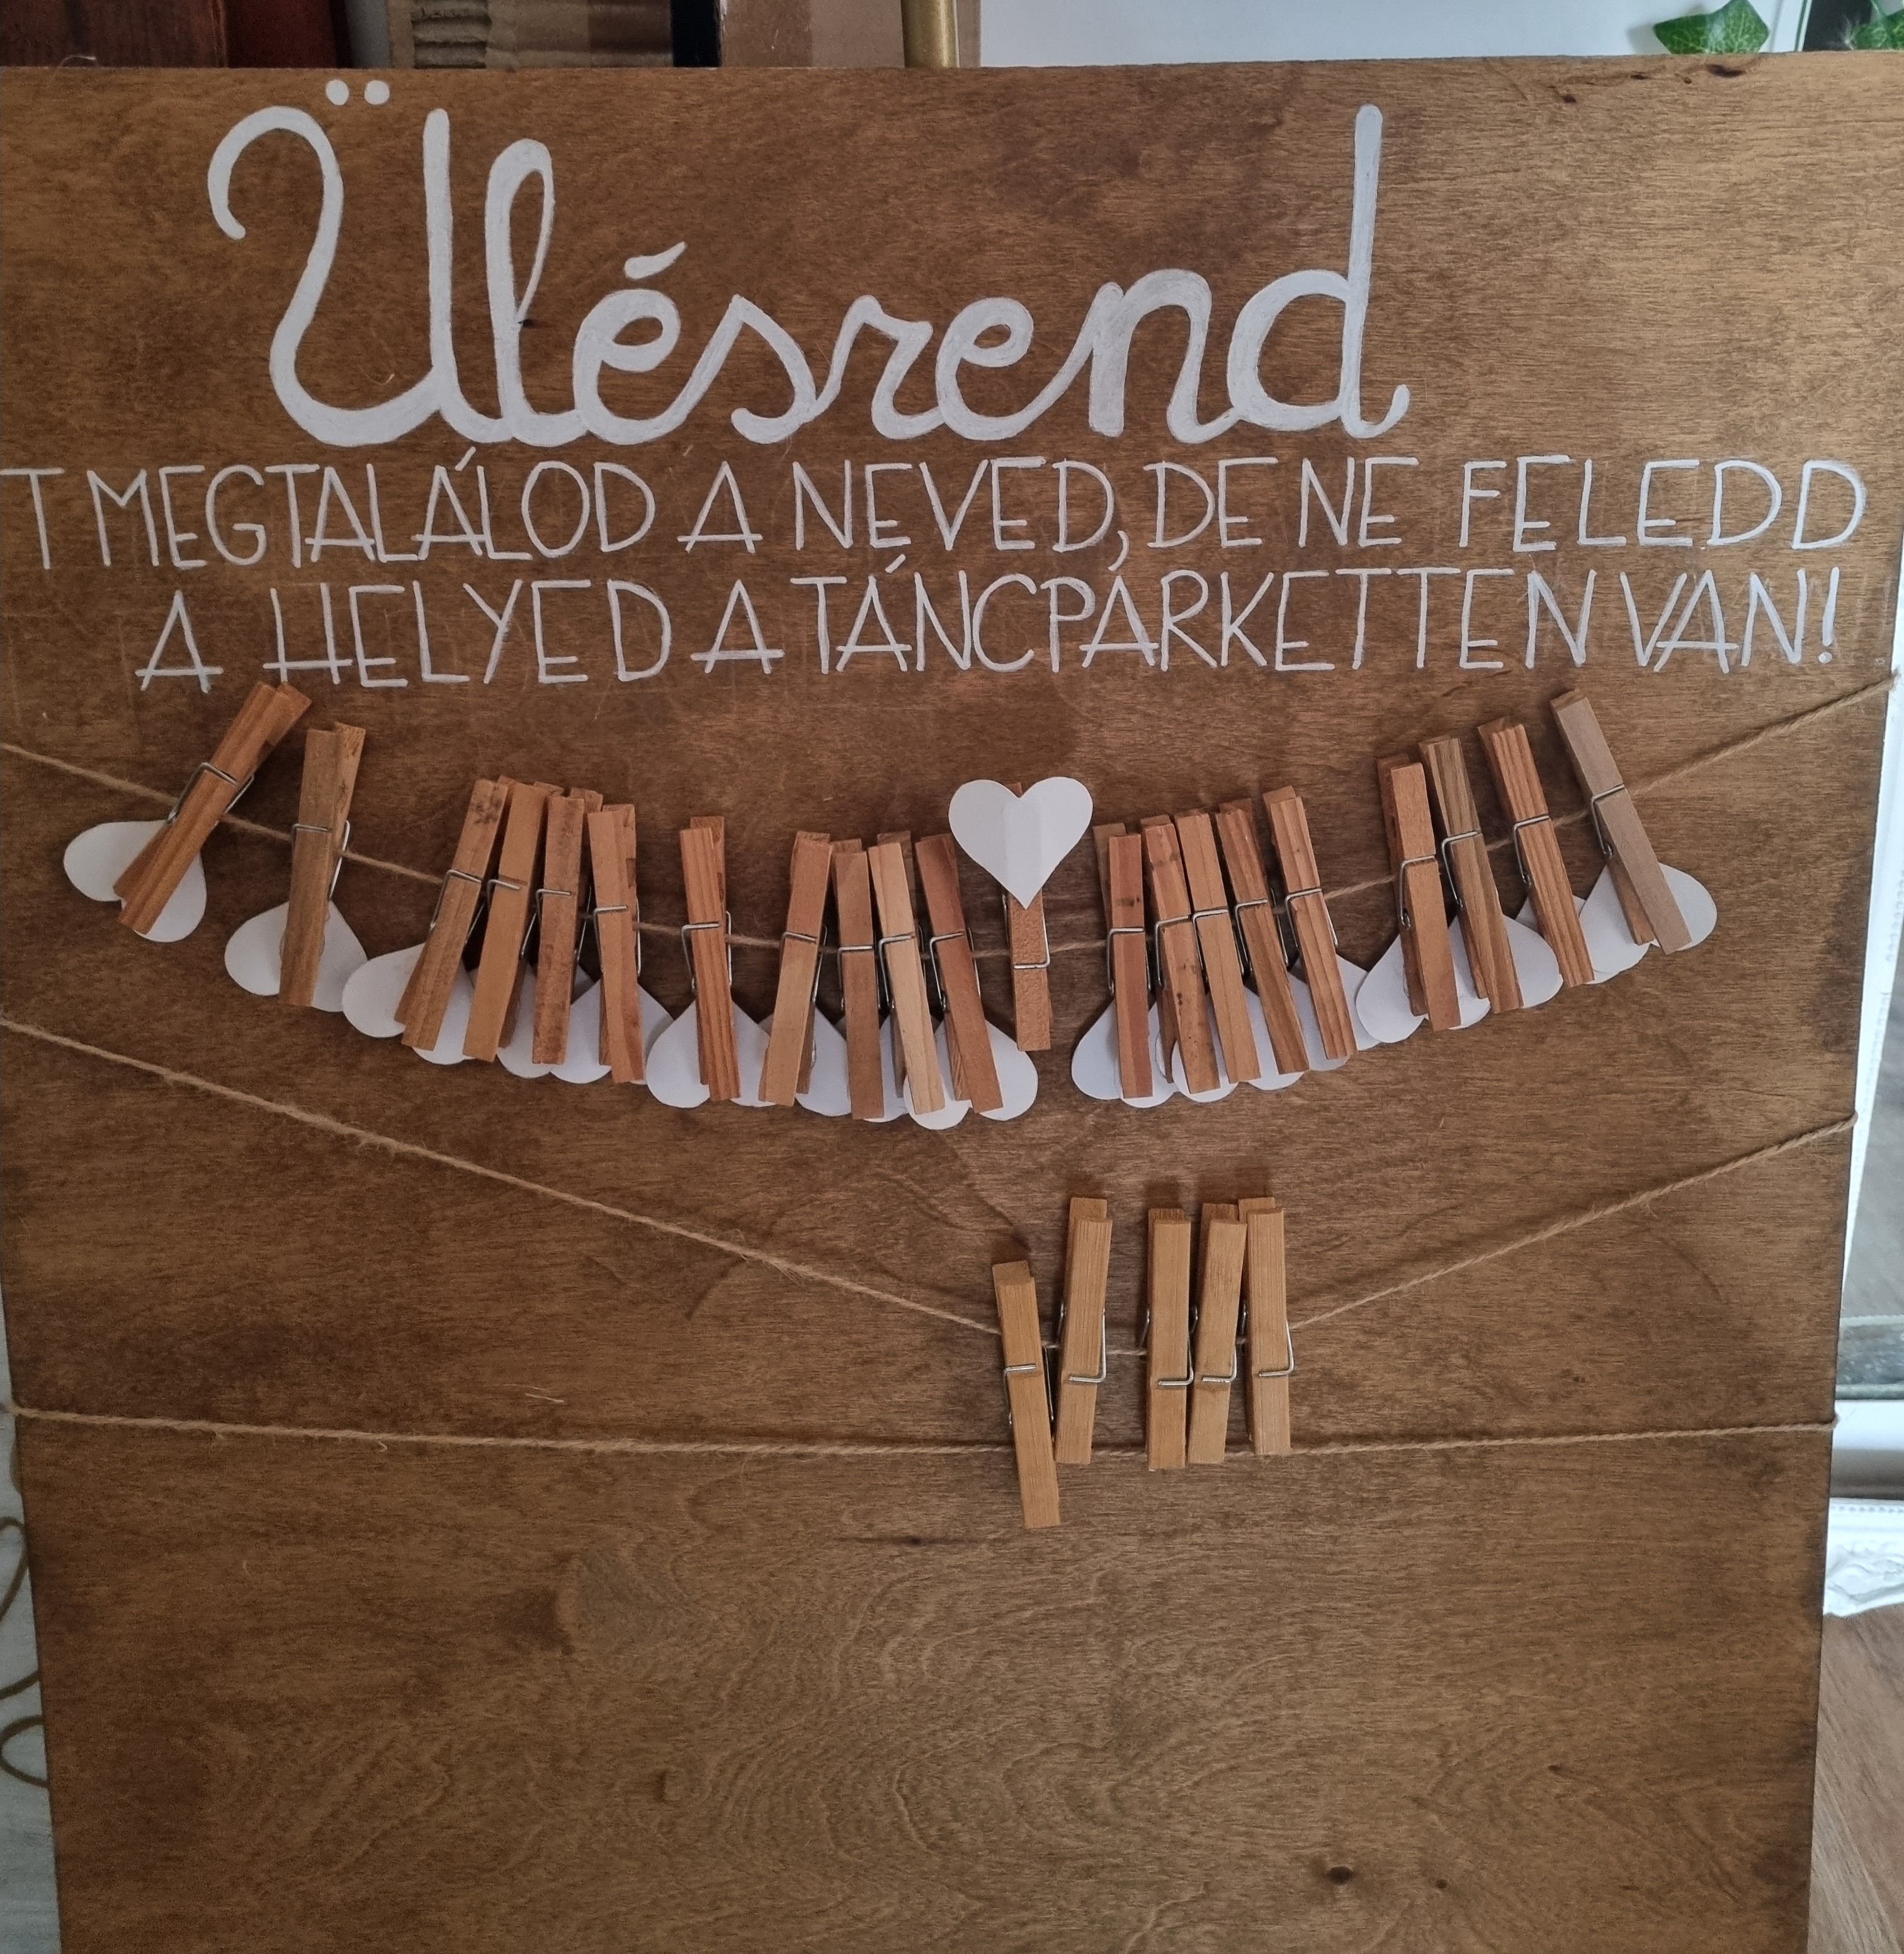 Ülésrend
T MEGTALÁLOD A NEVED, DE NE FELEDD
A HELYED A TÁNCPARKETTEN VAN!